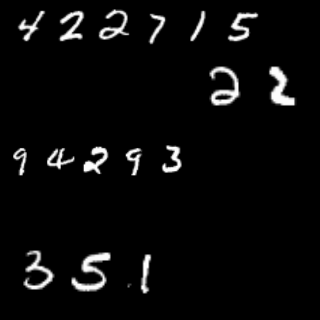 4 2 2 7 1 5
2 2
9 4 2 9 3
3 5 1